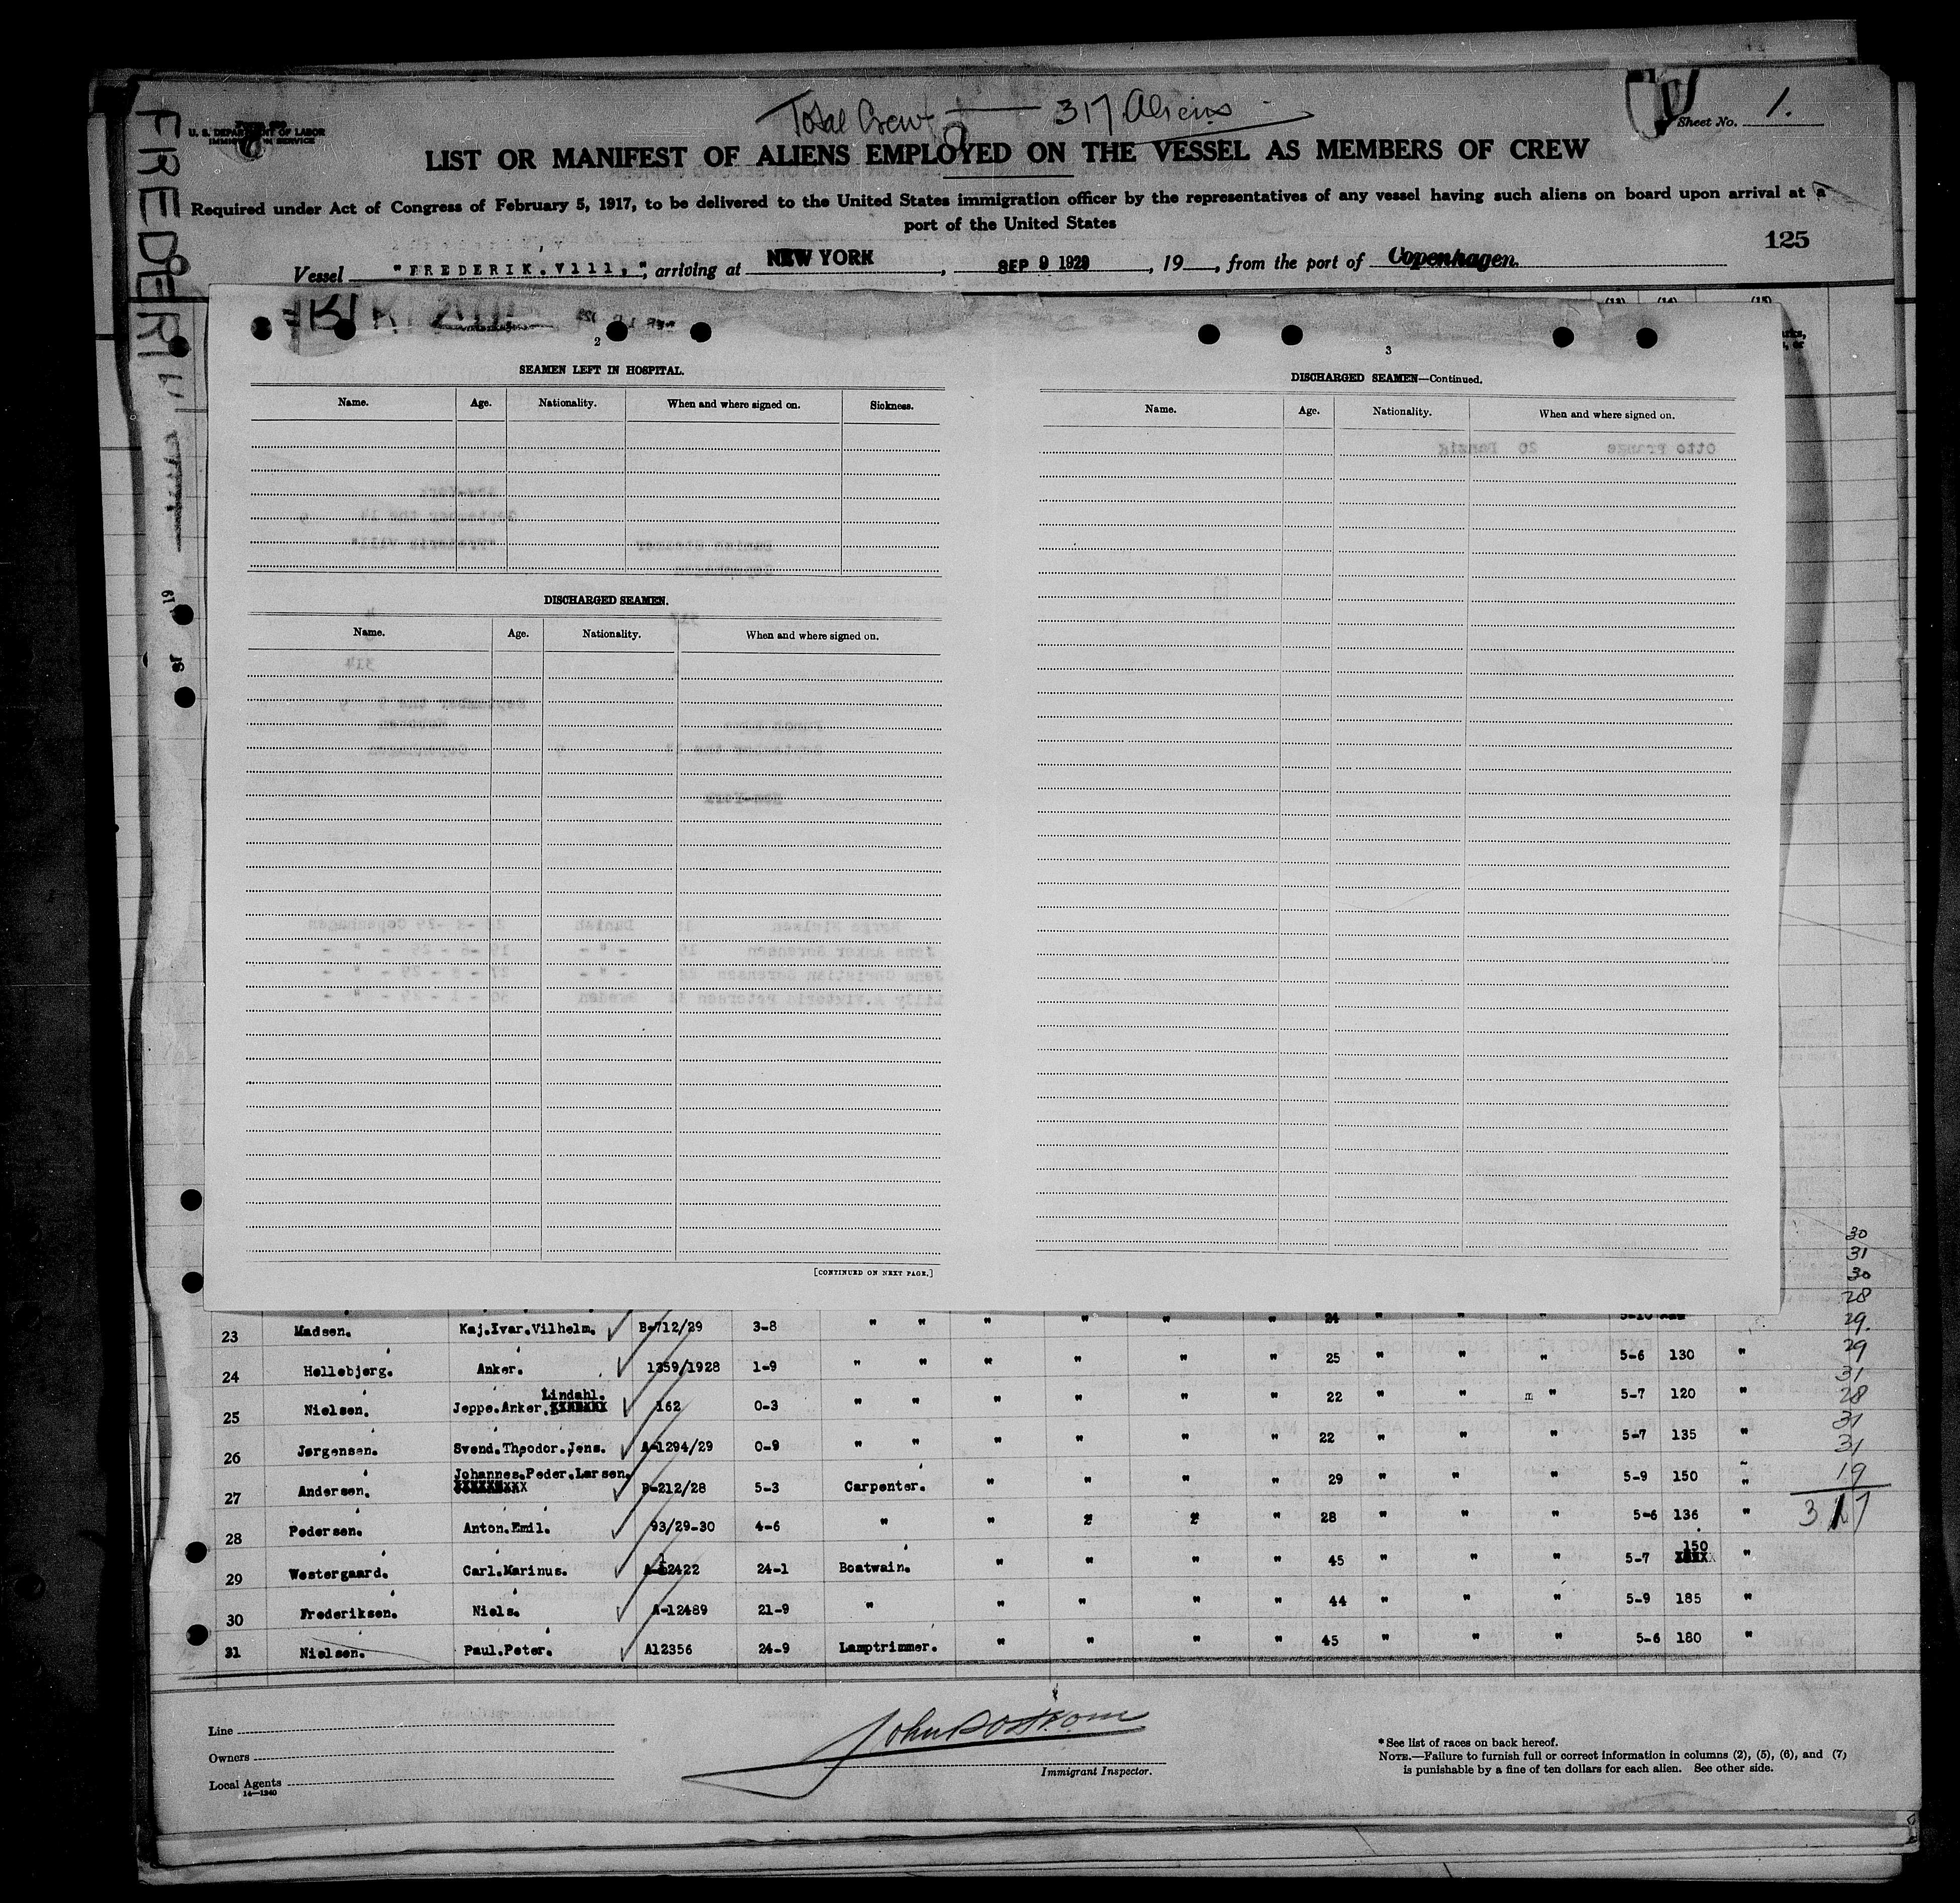 Total Crew — 317 Aliens
U. S. DEPARTMENT OF LABOR
IMMIGRATION SERVICE
Sheet No. 1.
LIST OR MANIFEST OF ALIENS EMPLOYED ON THE VESSEL AS MEMBERS OF CREW
Required under Act of Congress of February 5, 1917, to be delivered to the United States immigration officer by the representatives of any vessel having such aliens on board upon arrival at a
port of the United States
125
Vessel "FREDERIK.Vlll.", arriving at NEW YORK, SEP 9 1929, 19, from the port of Copenhagen.
2
SEAMEN LEFT IN HOSPITAL.
Name. Age. Nationality. When and where signed on. Sickness.
DISCHARGED SEAMEN.
Name. Age. Nationality. When and where signed on.
[CONTINUED ON NEXT PAGE.]
3
DISCHARGED SEAMEN—Continued.
Name. Age. Nationality. When and where signed on.
30
31
30
28
29.
29
31
28
31
31
19
317
23 Madsen. Kaj.Ivar.Vilhelm. B-712/29 3-8 " " " " " " 24 " " "
24 Hellebjerg. Anker. 1359/1928 1-9 " " " " " " 25 " " " 5-6 130 "
25 Nielsen. Jeppe.Anker. Lindahl. 162 0-3 " " " " " " 22 " " " 5-7 120 "
26 Jørgensen. Svend.Theodor.Jens. A-1294/29 0-9 " " " " " " 22 " " " 5-7 135 "
27 Andersen. Johannes.Peder.Larsen. B-212/28 5-3 Carpenter. " " " " 29 " " " 5-9 150 "
28 Pedersen. Anton.Emil. 93/29-30 4-6 " " " " " 28 " " " 5-6 136 "
29 Westergaard. Carl.Marinus. A-12422 24-1 Boatwain. " " " " 45 " " " 5-7 150 "
30 Frederiksen. Niels. A-12489 21-9 " " " " " 44 " " " 5-9 185 "
31 Nielsen. Paul.Peter. A12356 24-9 Lamptrimmer. " " " " 45 " " " 5-6 180 "
Line
Owners
Local Agents
14—1240
John Bostrom
Immigrant Inspector.
* See list of races on back hereof.
NOTE.—Failure to furnish full or correct information in columns (2), (5), (6), and (7)
is punishable by a fine of ten dollars for each alien. See other side.